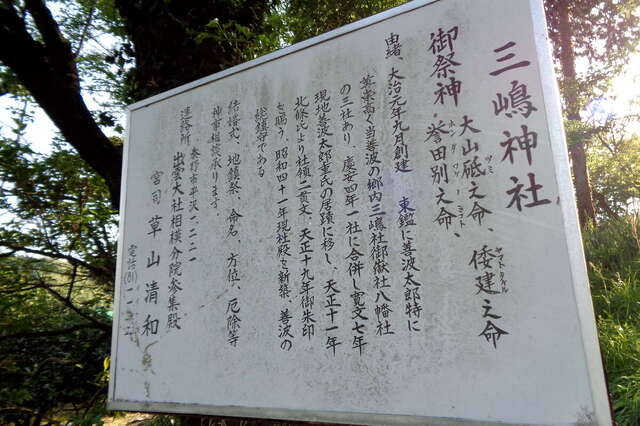 三嶋神社
御祭神 大山祗之命、倭建之命
誉田別之命、
ツミ
ヤマトタケル
ホンダワケノミコト
由緒、大治元年九月創建 東鑑に善波太郎特に
崇高く当善波の郷内三嶋社御嶽社八幡社
の三社あり、慶安四年一社に合併し寛文七年
現地善波太郎重氏の居蹟に移し、天正十一年
北條氏より社領二貫文、天正十九年御朱印
を賜う、昭和四十一年現社殿を新築、善波の
総鎮守である
結婚式、地鎮祭、命名、方位、厄除等
神事相談承ります。
連絡所 秦野市平沢一二二一
出雲大社相模分院参集殿
宮司 草山清和
電話(81)一一二二